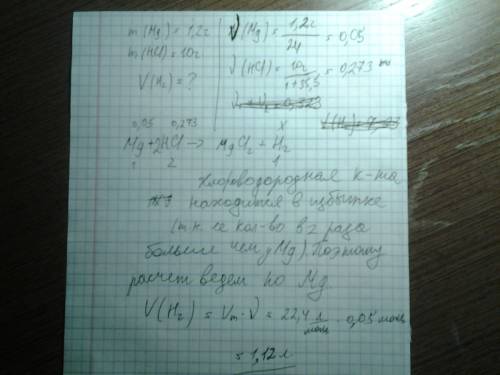 m(Mg)=1,2г
m(HCl)=10г
V(H₂)=?
ν(Mg)=1,2г/24=0,05
ν(HCl)=10г/1+35,5=0,273
0,05 0,273 x
Mg+2HCl→MgCl₂+H₂
1 2 1
Хлороводородная к-та
находится в избытке
(т.к. ее кол-во в 2 раза
больше чем у Mg). Поэтому
расчет ведем по Mg.
V(H₂)=Vm·ν=22,4 л/моль·0,05 моль
=1,12 л